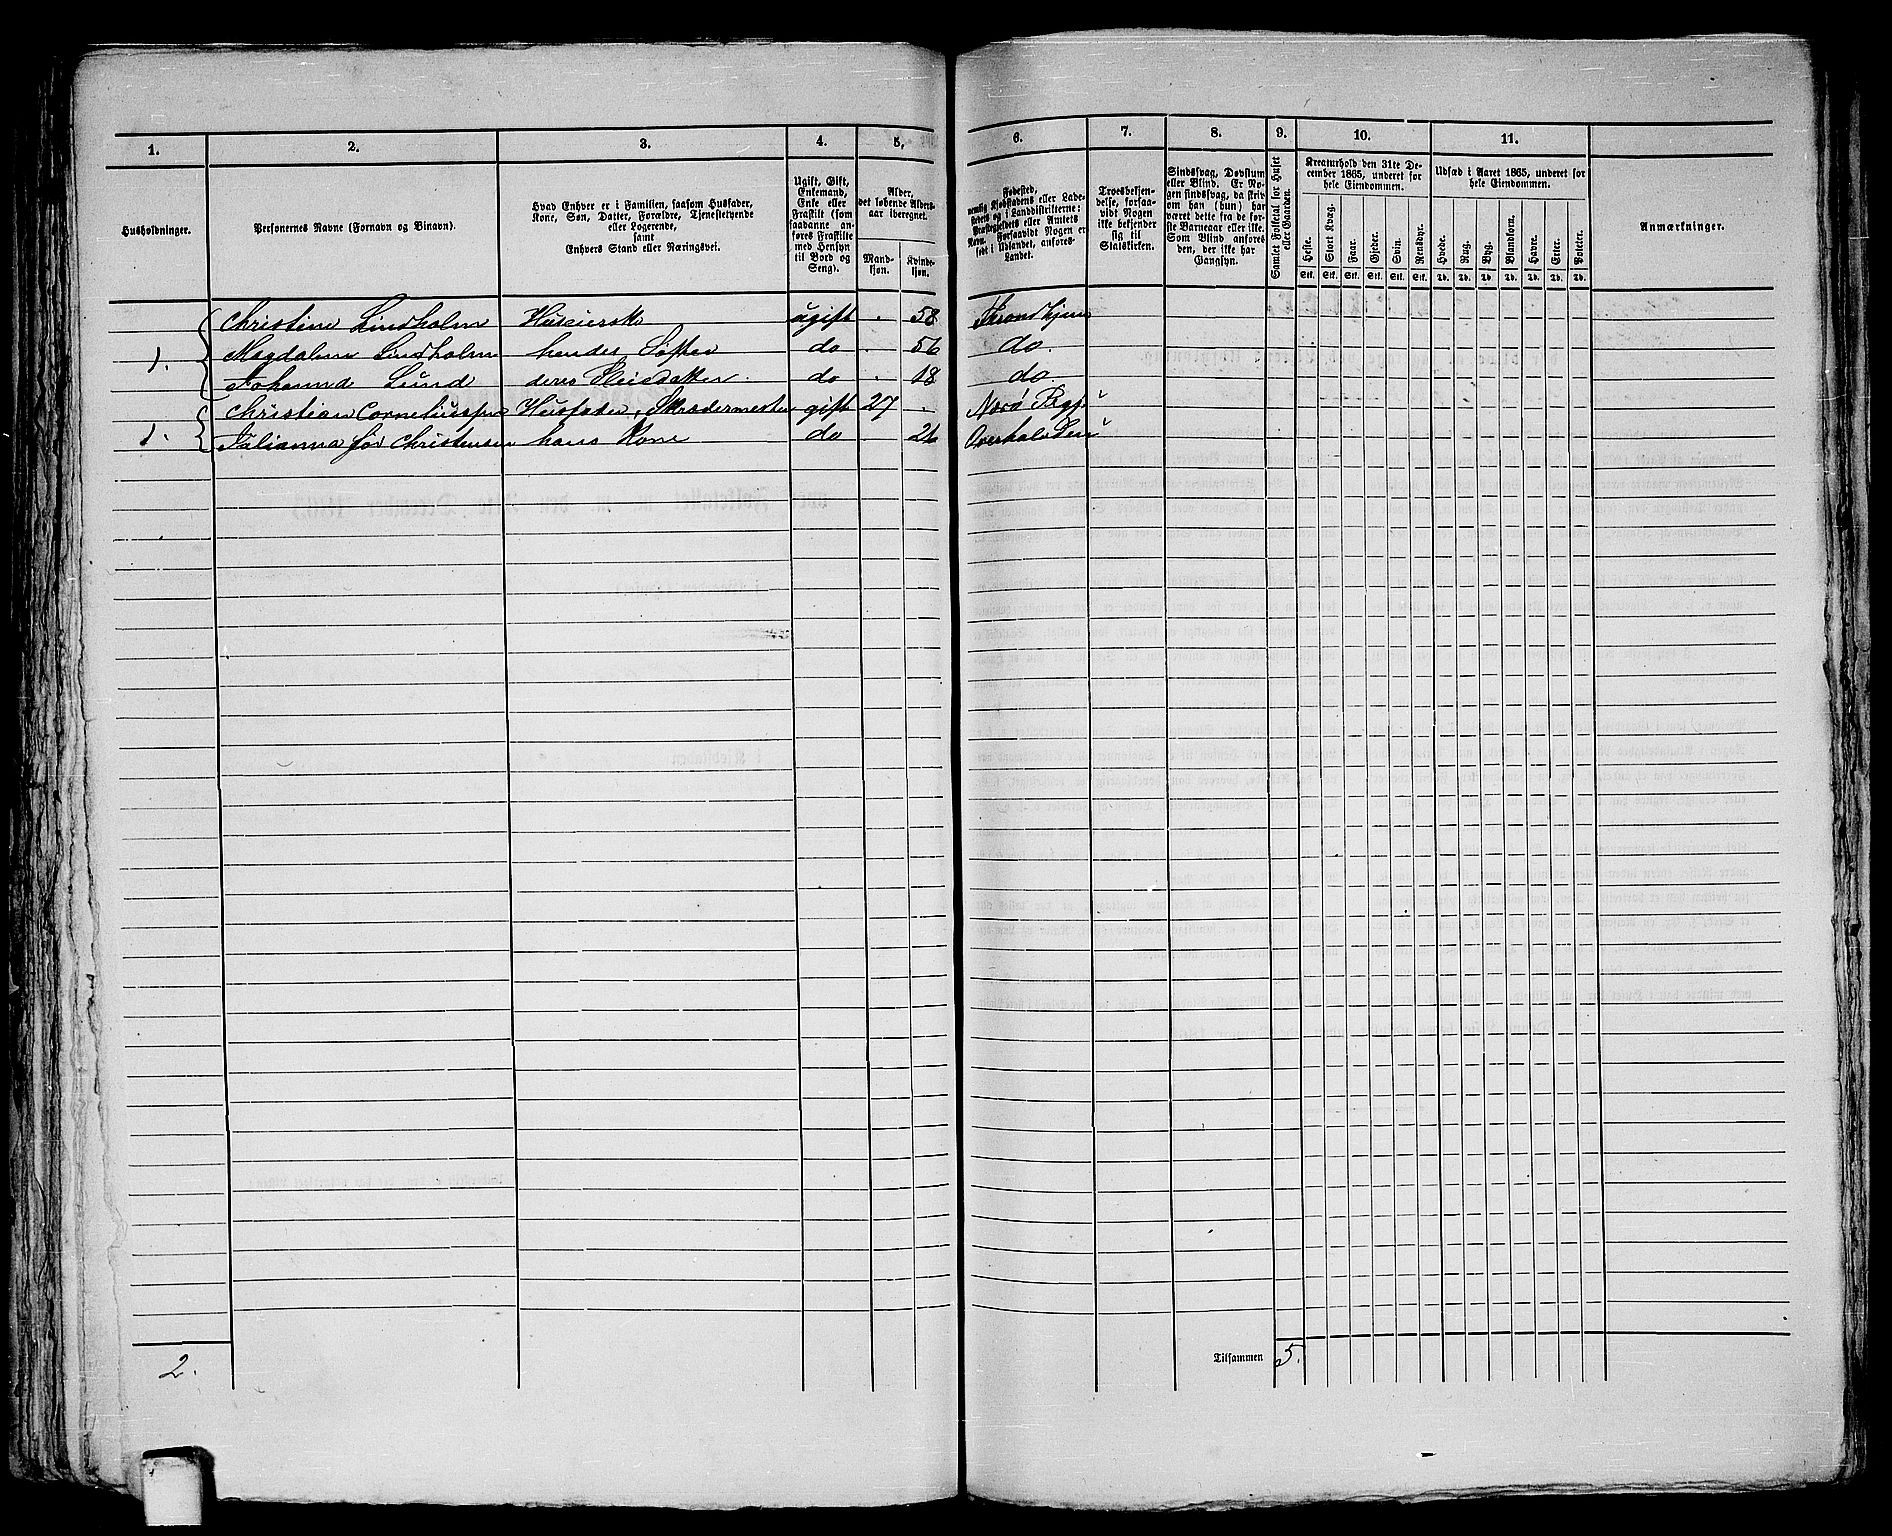 1. 2. 3. 4. 5. 6. 7. 8. 9. 10. 11.
Husholdninger.
Personernes Navne (Fornavn og Binavn).
Hvad Enhver er i Familien, saasom Husfader,
Kone, Søn, Datter, Forældre, Tjenestetyende
eller Logerende,
samt
Enhvers Stand eller Næringsvei.
Ugift, Gift,
Enkemand,
Enke eller
Fraskilt (som
saadanne an-
føres Fraskilte
med Hensyn
til Bord og
Seng).
Alder,
det løbende Alders-
aar iberegnet.
Mand-
kjøn.
Kvinde-
kjøn.
Fødested,
nemlig Kjøbstadens eller Lade-
stedets og i Landdistrikterne:
Præstegjeldets eller Amtets
Navn. Forsaavidt Nogen er
født i Udlandet, anføres
Landet.
Troesbekjen-
delse, forsaa-
vidt Nogen
ikke bekjender
sig til
Statskirken.
Sindssvag, Døvstum
eller Blind. Er No-
gen sindssvag, da skriv
om han (hun) har
været dette fra de før-
ste Barneaar eller ikke.
Som Blind anføres
den, der ikke har
Gangsyn.
Samlet Folketal for Huset
eller Gaarden.
Kreaturhold den 31te De-
cember 1865, underet for
hele Eiendommen.
Heste. Stort Kvæg. Faar. Gjeder. Svin. Rensdyr.
Stk. Stk. Stk. Stk. Stk. Stk.
Udsæd i Aaret 1865, underet for
hele Eiendommen.
Hvede. Rug. Byg. Blandkorn. Havre. Erter. Poteter.
Td. Td. Td. Td. Td. Td. Td.
Anmærkninger.
Christine Lindholm Huseierske ugift - 58 Trondhjem
1. Magdalene Lindholm hendes Søster do - 56 do.
Lund deres Pleiedatter do - 18 do.
Christian Corneliussen Husfader, Skrædermester gift 27 -
1. Julianna Christensen hans Kone do 26 Overhalden
2.
Tilsammen 5.